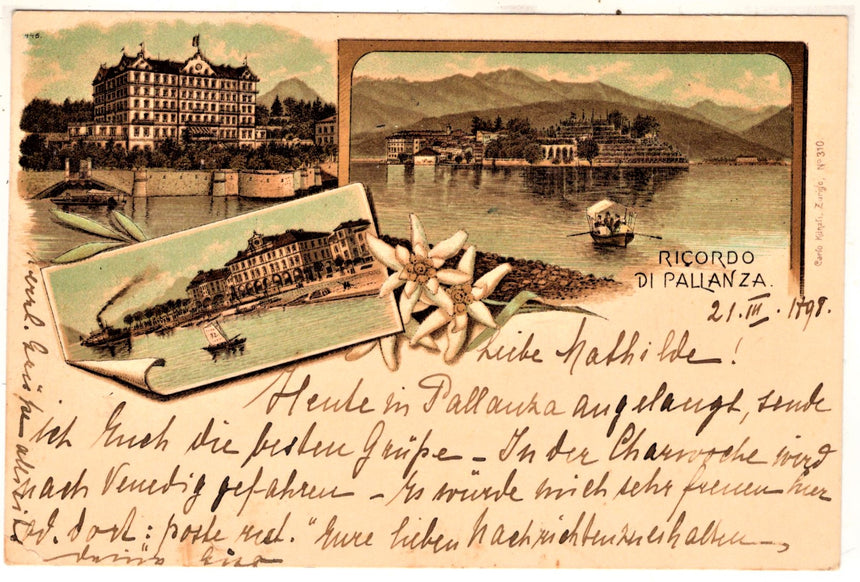 146.
RICORDO
DI PALLANZA.
Carlo Künzli, Zurigo, No 310.
21.III.1898.
Liebe Mathilde!
Heute in Pallanza angelangt, sende
ich Euch die besten Grüße – In der Charwoche wird
nach Venedig gefahren – Es würde mich sehr freuen hier
od. dort: poste rest." Eure lieben Nachrichten zu erhalten –,
Grüße